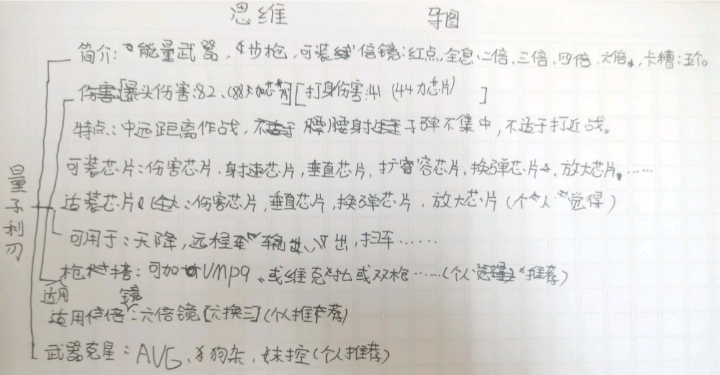 思维 导图
简介:能量武器,步枪,可装倍镜:红点,全息,二倍,三倍,四倍,六倍,卡槽:五个。
伤害[暴头伤害:82、(88加芯片)][打身伤害:41 (44力芯片) ]
特点:中远距离作战,腰射子弹不集中,不适于打近战。
可装芯片:伤害芯片,射速芯片,垂直芯片,扩容芯片,换弹芯片,放大芯片,……
适装芯片:伤害芯片,垂直芯片,换弹芯片,放大芯片(个人觉得)
量子利刃
可用于:天降,远程输出,扫车……
枪搭:可加UMP9、或维克托或双枪……(个人推荐)
适用倍镜:六倍镜[六换三](个人推荐)
武器克星:AVG、狗杂,妹控(个人推荐)